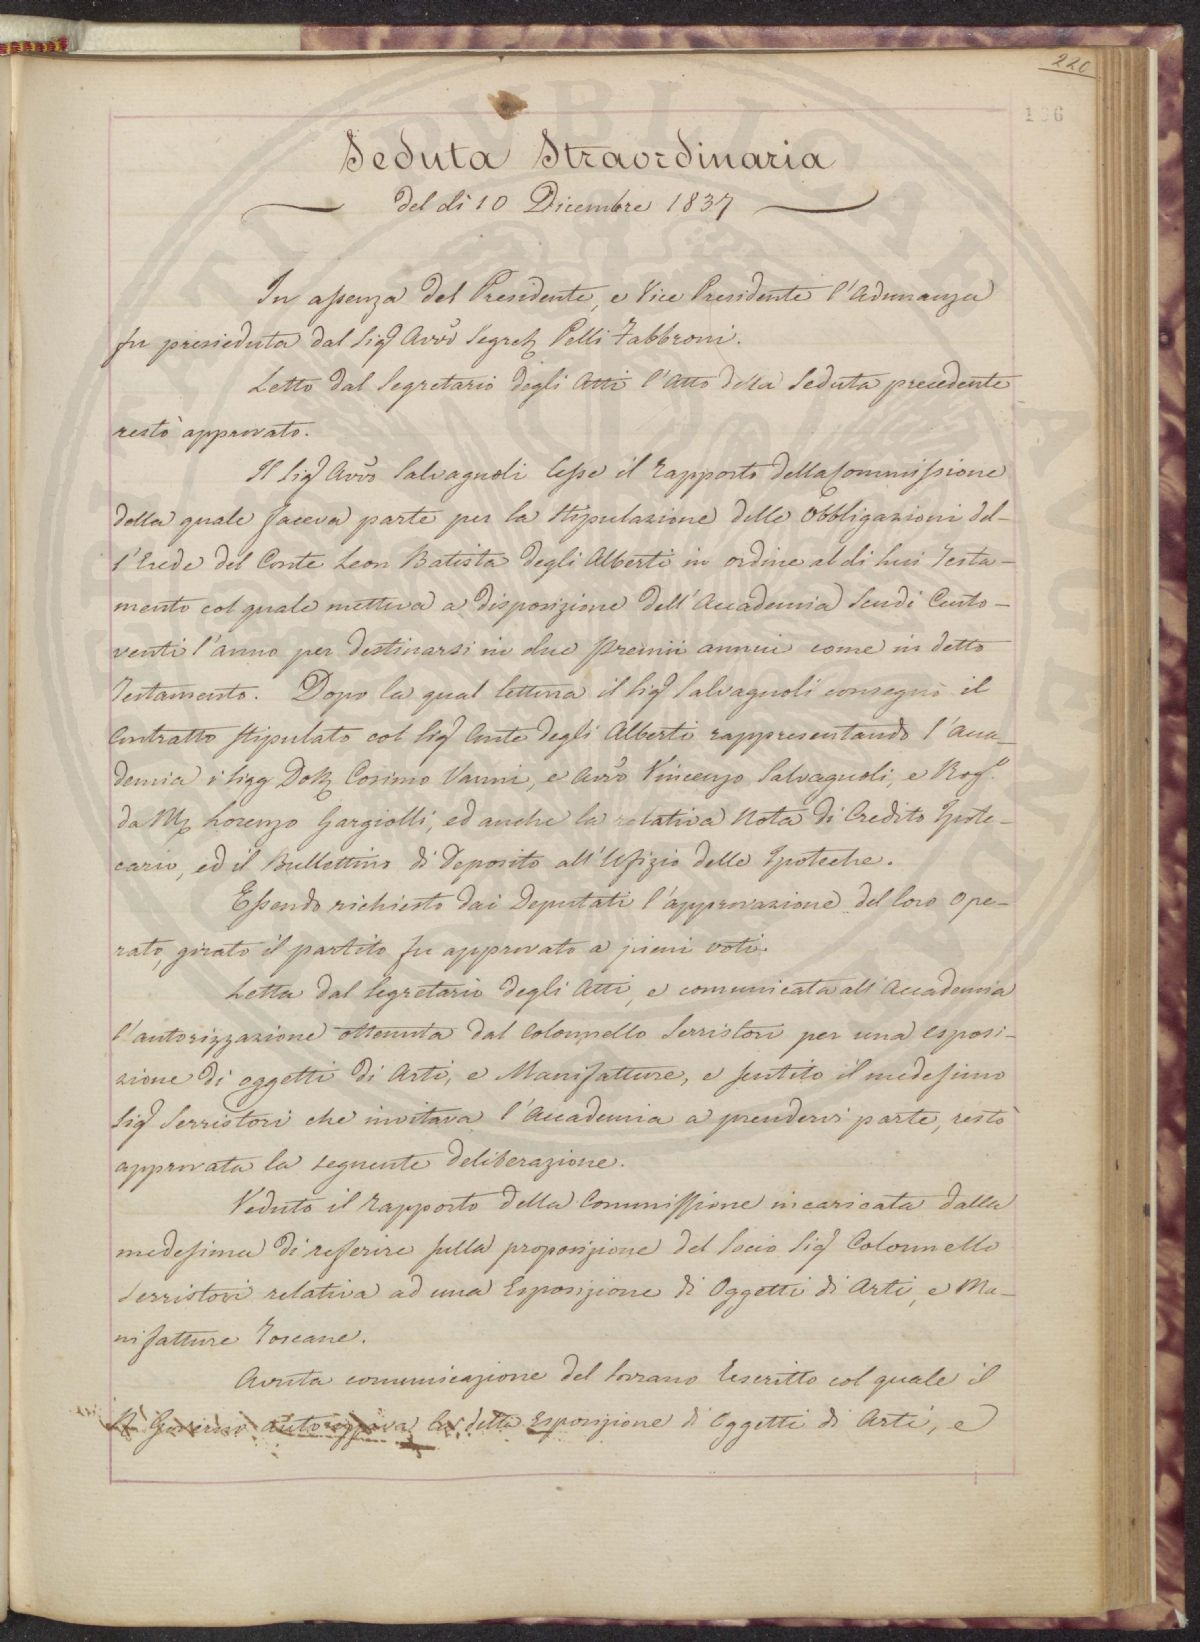 220
196
Seduta Straordinaria
del dì 10 Dicembre 1837
In assenza del Presidente, e Vice Presidente l'Adunanza
fu presieduta dal Sig.r Avv.o Segret.o Pelli Fabbroni.
Letto dal Segretario degli Atti l'Atto della Seduta precedente
restò approvato.
Il Sig.r Avv.o Salvagnoli lesse il rapporto della Commissione
della quale faceva parte per la stipulazione delle Obbligazioni del-
l'Erede del Conte Leon Batista degli Alberti in ordine al di lui Testa-
mento col quale metteva a disposizione dell'Accademia Scudi Cento-
venti l'anno per destinarsi in due premii annui come in detto
Testamento. Dopo la qual lettura il Sig.r Salvagnoli consegnò il
Contratto stipulato col Sig.r Conte degli Alberti rappresentando l'Acca-
demia i Sigg Dott. Cosimo Vanni, e Avv.o Vincenzo Salvagnoli, e Rog.o
da M.r Lorenzo Gargiolli, ed anche la relativa Nota di Credito Ipote-
cario, ed il Bullettino di Deposito all'Ufizio delle Ipoteche.
Essendo richiesto dai Deputati l'approvazione del loro ope-
rato, girato il partito fu approvato a pieni voti.
Letta dal Segretario degli Atti, e comunicata all'Accademia
l'autorizzazione ottenuta dal Colonnello Serristori per una esposi-
zione di oggetti di Arti, e Manifatture, e sentito il medesimo
Sig.r Serristori che invitava l'Accademia a prendervi parte, restò
approvata la seguente deliberazione.
Veduto il rapporto della Commissione incaricata dalla
medesima di referire sulla proposizione del Socio Sig.r Colonnello
Serristori relativa ad una Esposizione di Oggetti di Arti, e Ma-
nifatture Toscane.
Avuta comunicazione del Sovrano Rescritto col quale il
R. Governo autorizzava la detta Esposizione di Oggetti di Arti, e